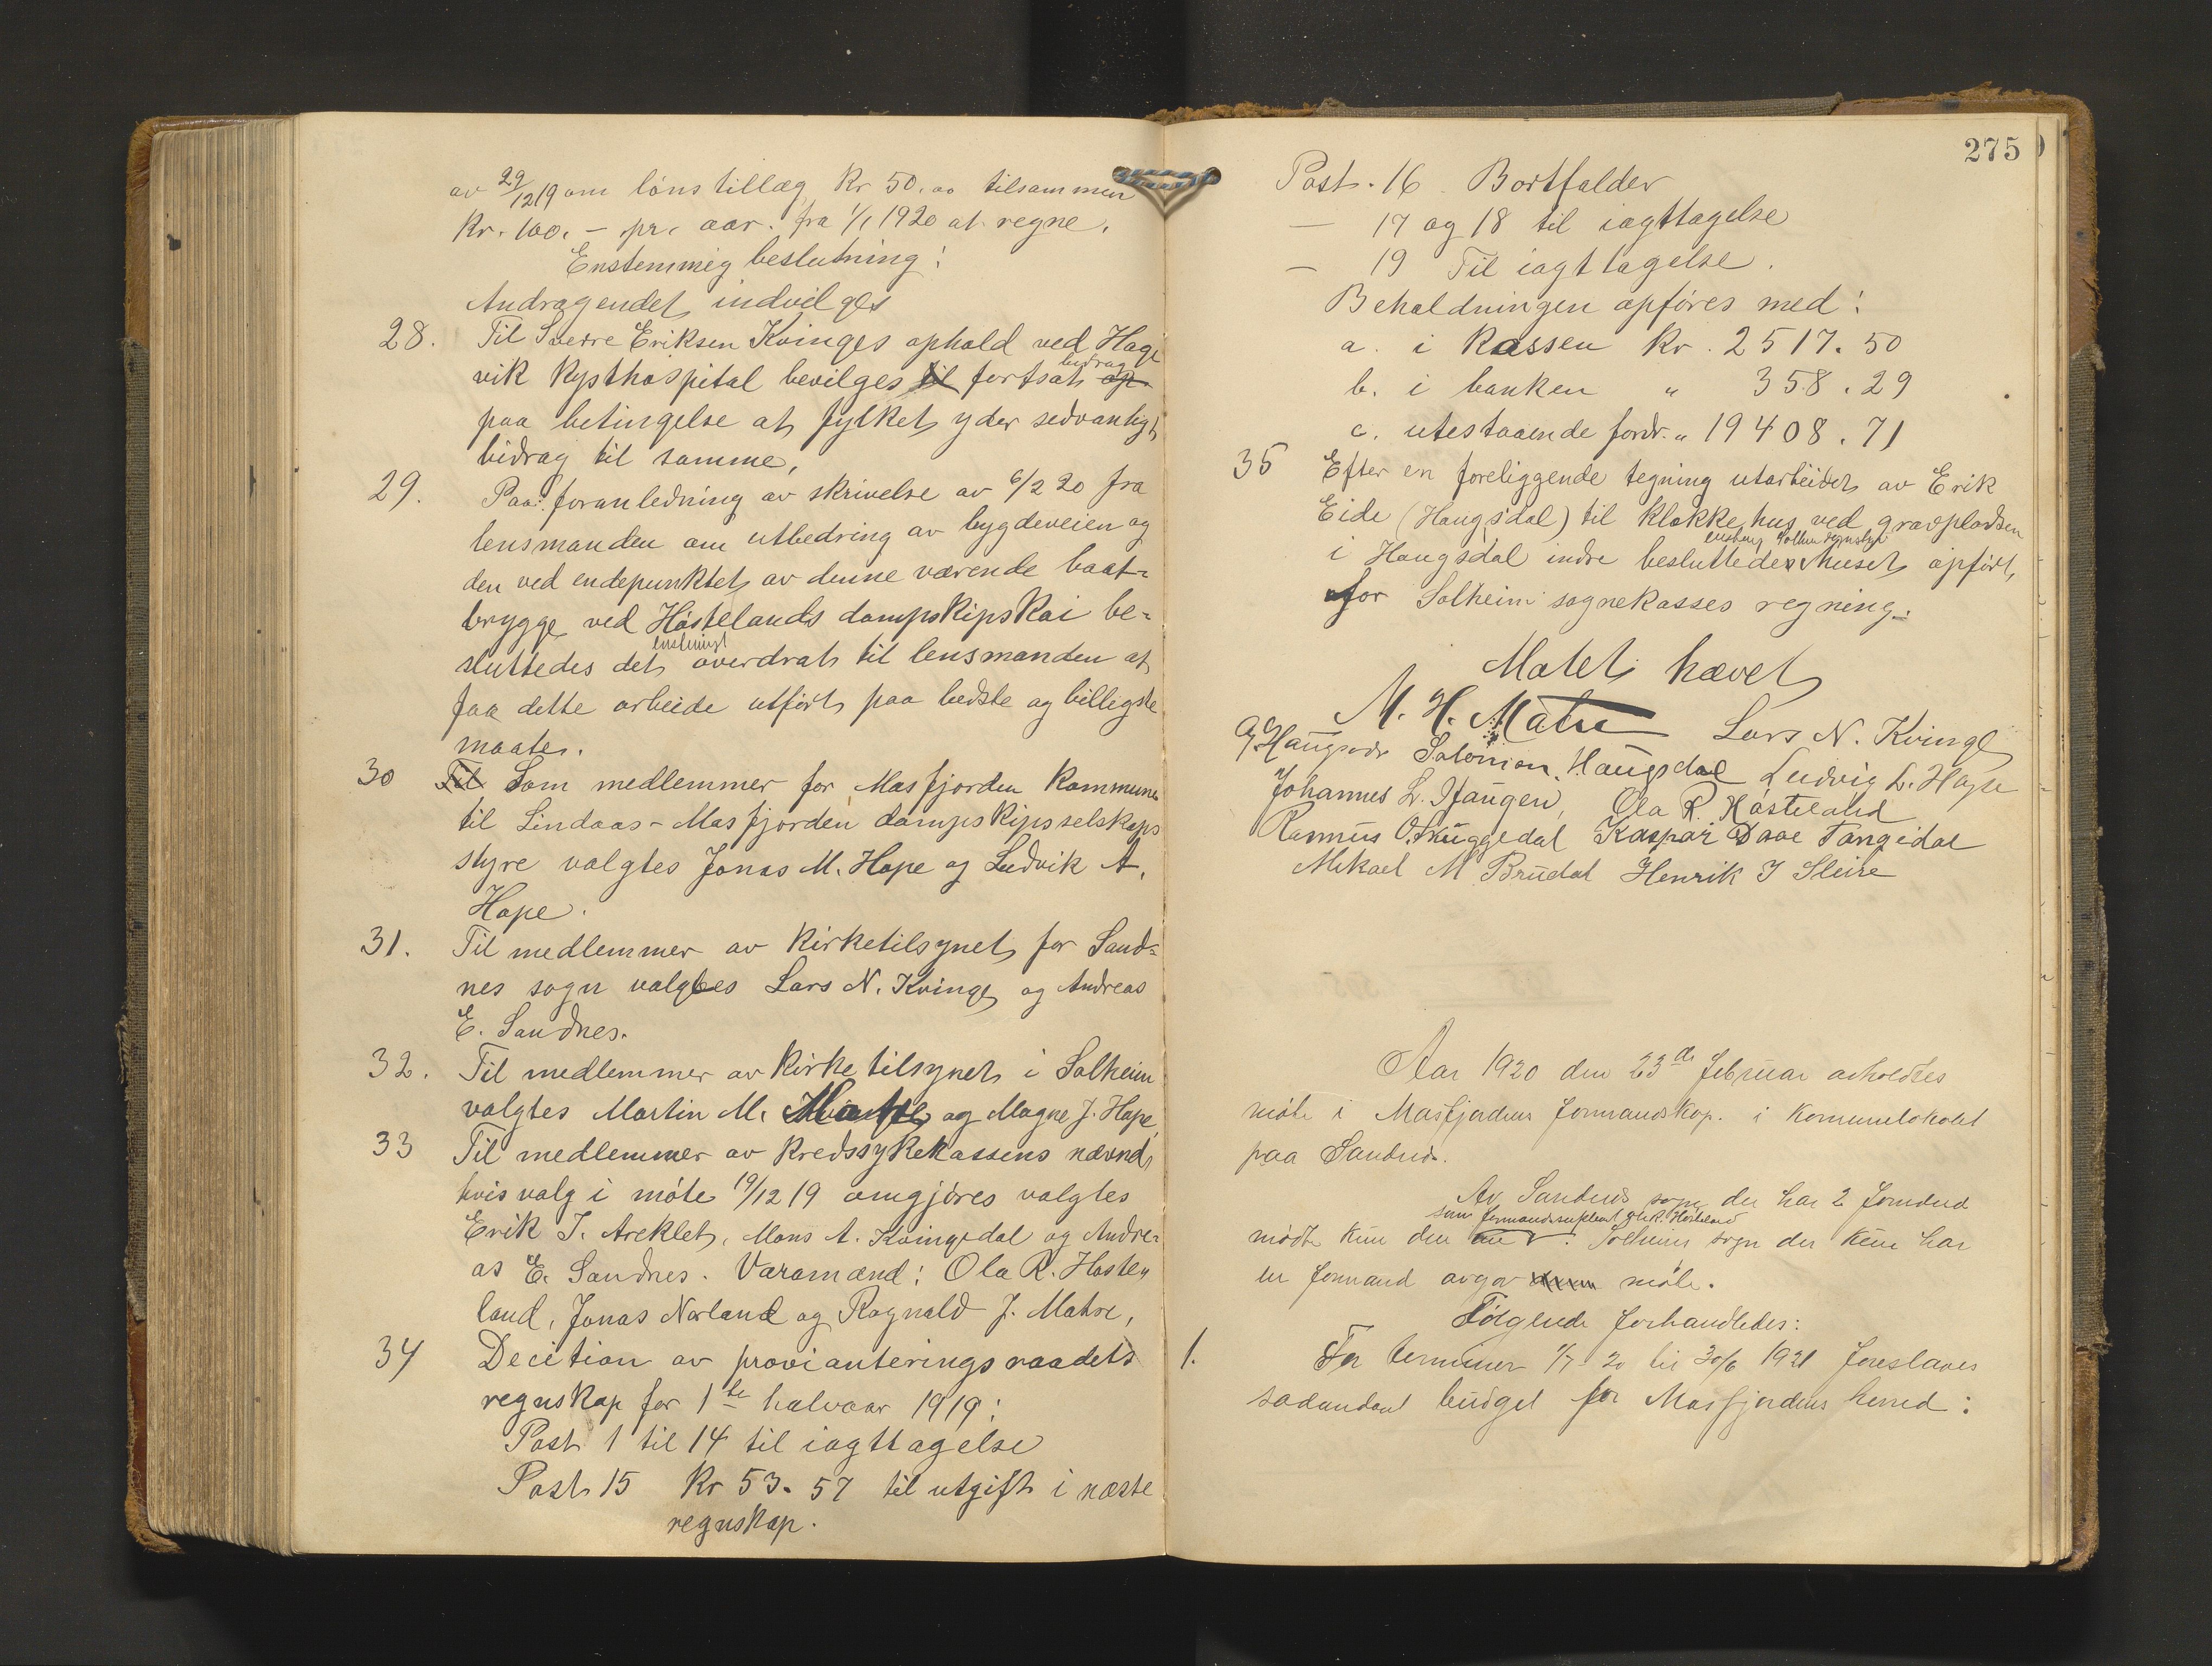 av 29/12 19 om lønstillæg Kr 50,00 tilsammen
Kr. 100,- pr. aar. fra 1/1 1920 at regne.
Enstemmig beslutning:
Andragendet indvilges
28. Til Sverre Eriksen Kvinges ophold ved Hage
vik Kysthospital bevilges til fortsat bidrag op
paa betingelse at fylket yder sedvanligt
bidrag til samme.
29. Paa foranledning av skrivelse av 6/2 20 fra
lensmanden om utbedring av bygdeveien og
den ved endepunktet av denne værende baat-
brygge ved Høstelands dampskipskai be-
sluttedes det enstemigt overdrat til lensmanden at
faa dette arbeide utført paa bedste og billigste
maate.
30 Til Som medlemmer for Masfjorden Kommune
til Lindaas-Masfjorden dampskipsselskaps
styre valgtes Jonas M. Hope og Ludvik A.
Hope.
31. Til medlemmer av Kirketilsynet for Sand-
nes sogn valgtes Lars N. Kvinge og Andreas
E. Sandnes.
32. Til medlemmer av Kirketilsynet i Solheim
valgtes Martin M. Matre og Magne J. Hope
33 Til medlemmer av Kredssykekassens nævnd
hvis valg i møte 19/12 19 omgjøres valgtes
Erik I. Areklet, Mons A. Kvingedal og Andre-
as E. Sandnes. Varamænd: Ola R. Høste-
land, Jonas Nørland og Ragnald J. Matre,
34 Decition av provianteringsraadets
regnskap for 1ste halvaar 1919:
Post 1 til 14 til iagttagelse
Post 15 Kr 53.57 til utgift i næste
regnskap.
275
Post. 16 Bortfalder
— 17 og 18 til iagttagelse
— 19 Til iagttagelse.
Beholdningen opføres med:
a. i Kassen Kr. 2517.50
b. i banken " 358.29
c. utestaaende fordr. " 19408.71
35 Efter en foreliggende tegning utarbeidet av Erik
Eide (Haugsdal) til Klokkehus ved gravpladsen
i Haugsdal indre besluttedes huset opført
for Solheim sognekasses regning.
Møtet hævet
M. H. Matre Lars N. Kvinge
Haugsdal Salomon Haugsdal Ludvig L. Hope
Johannes L. Haugen, Ola R. Høsteland
Rasmus O. Skuggedal Kaspar Dave Tangedal
Mikael M Brudal Henrik I Sleire
Aar 1920 den 23de februar avholdtes
møte i Masfjordens formandskap. i Kommunelokalet
paa Sandnes.
Av Sandnes sogn der har 2 formænd
som formandssuplent Ola R. Høsteland
mødte kun den Solheim sogn der kun har
en formand avgav møte.
Følgende forhandledes:
1. For terminen 1/7 20 til 30/6 1921 foreslaaes
saadandant budget for Masfjordens herred: